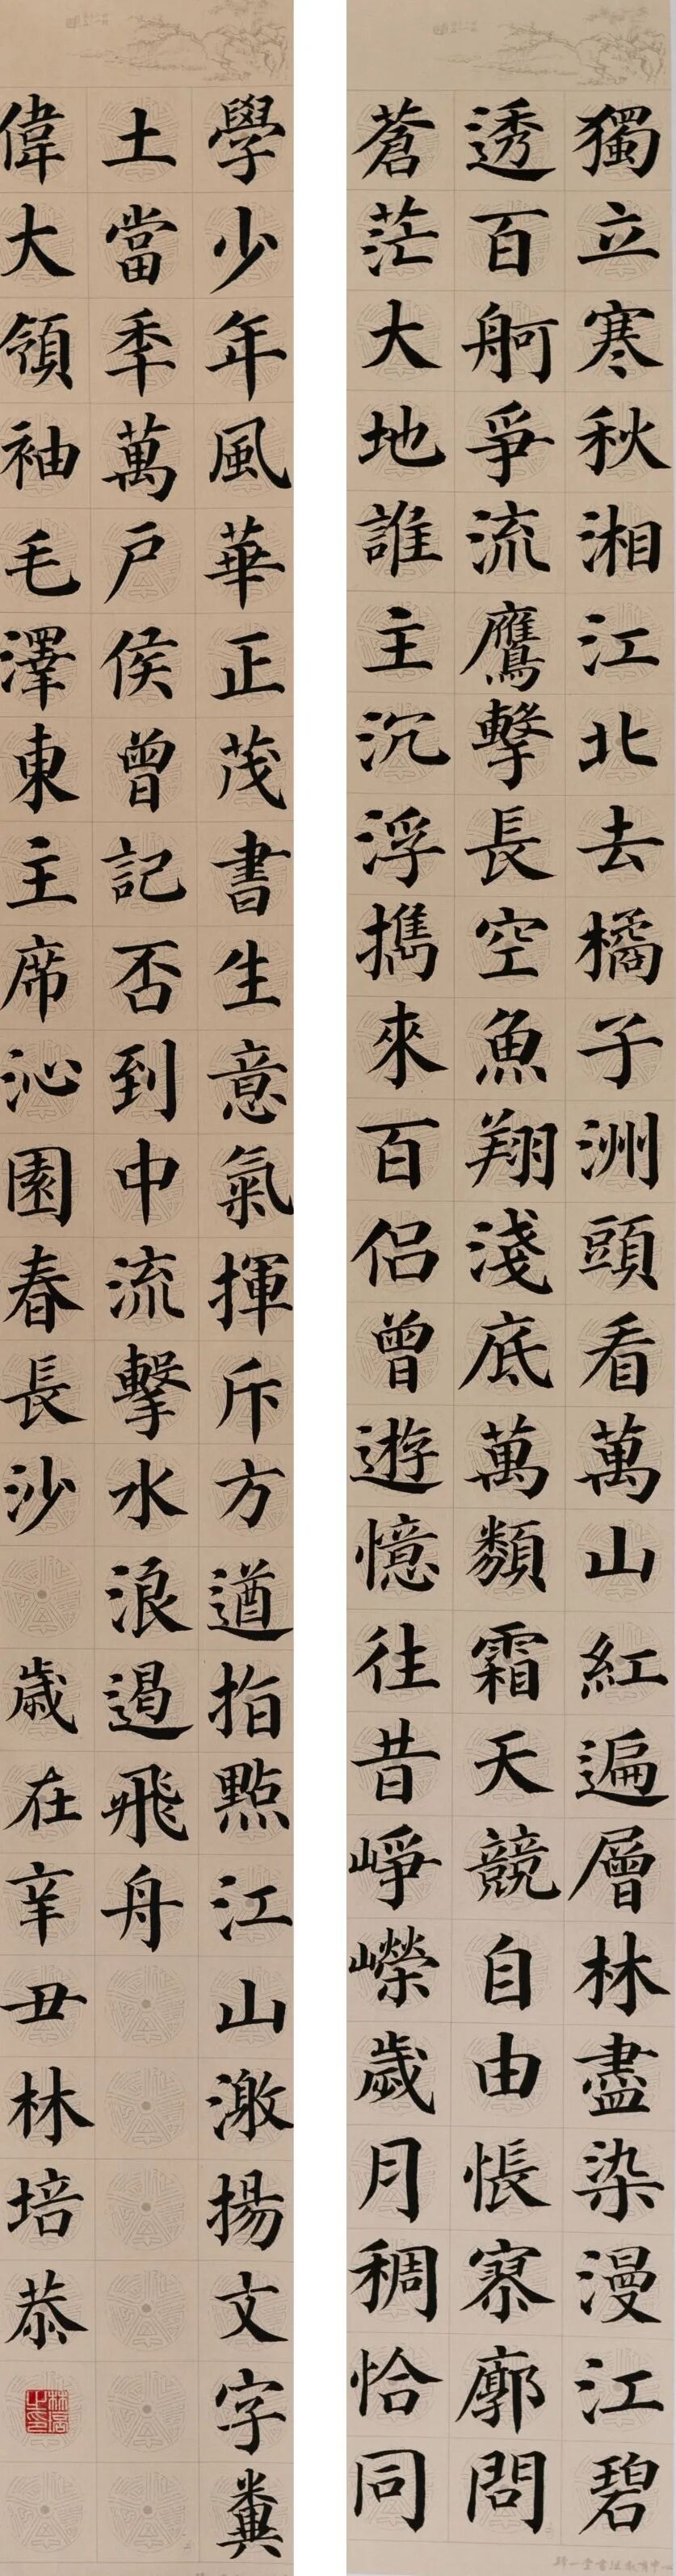 獨立寒秋湘江北去橘子洲頭看萬山紅遍層林盡染漫江碧
透百舸爭流鷹擊長空魚翔淺底萬類霜天競自由悵寥廓問
蒼茫大地誰主沉浮攜來百侶曾遊憶往昔崢嶸歲月稠恰同
學少年風華正茂書生意氣揮斥方遒指點江山激揚文字糞
土當秊萬戶侯曾記否到中流擊水浪遏飛舟
偉大領袖毛澤東主席沁園春長沙 歲在辛丑林培恭